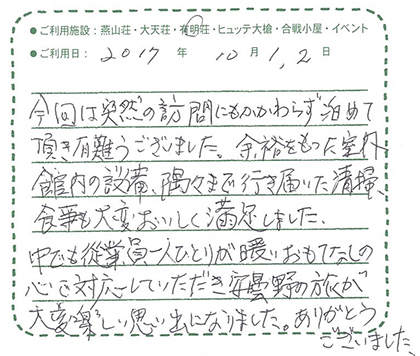 ●ご利用施設：燕山荘・大天荘・有明荘・ヒュッテ大槍・合戦小屋・イベント
●ご利用日：2017年10月1,2日
今回は突然の訪問にもかかわらず泊めて
頂き有難うございました。余裕をもった室外
館内の設備、隅々まで行き届いた清掃、
食事も大変おいしく満足しました、
中でも従業員一人ひとりが暖いおもてなしの
心で対応していただき安曇野の旅が
大変楽しい思い出になりました。ありがとう
ございました